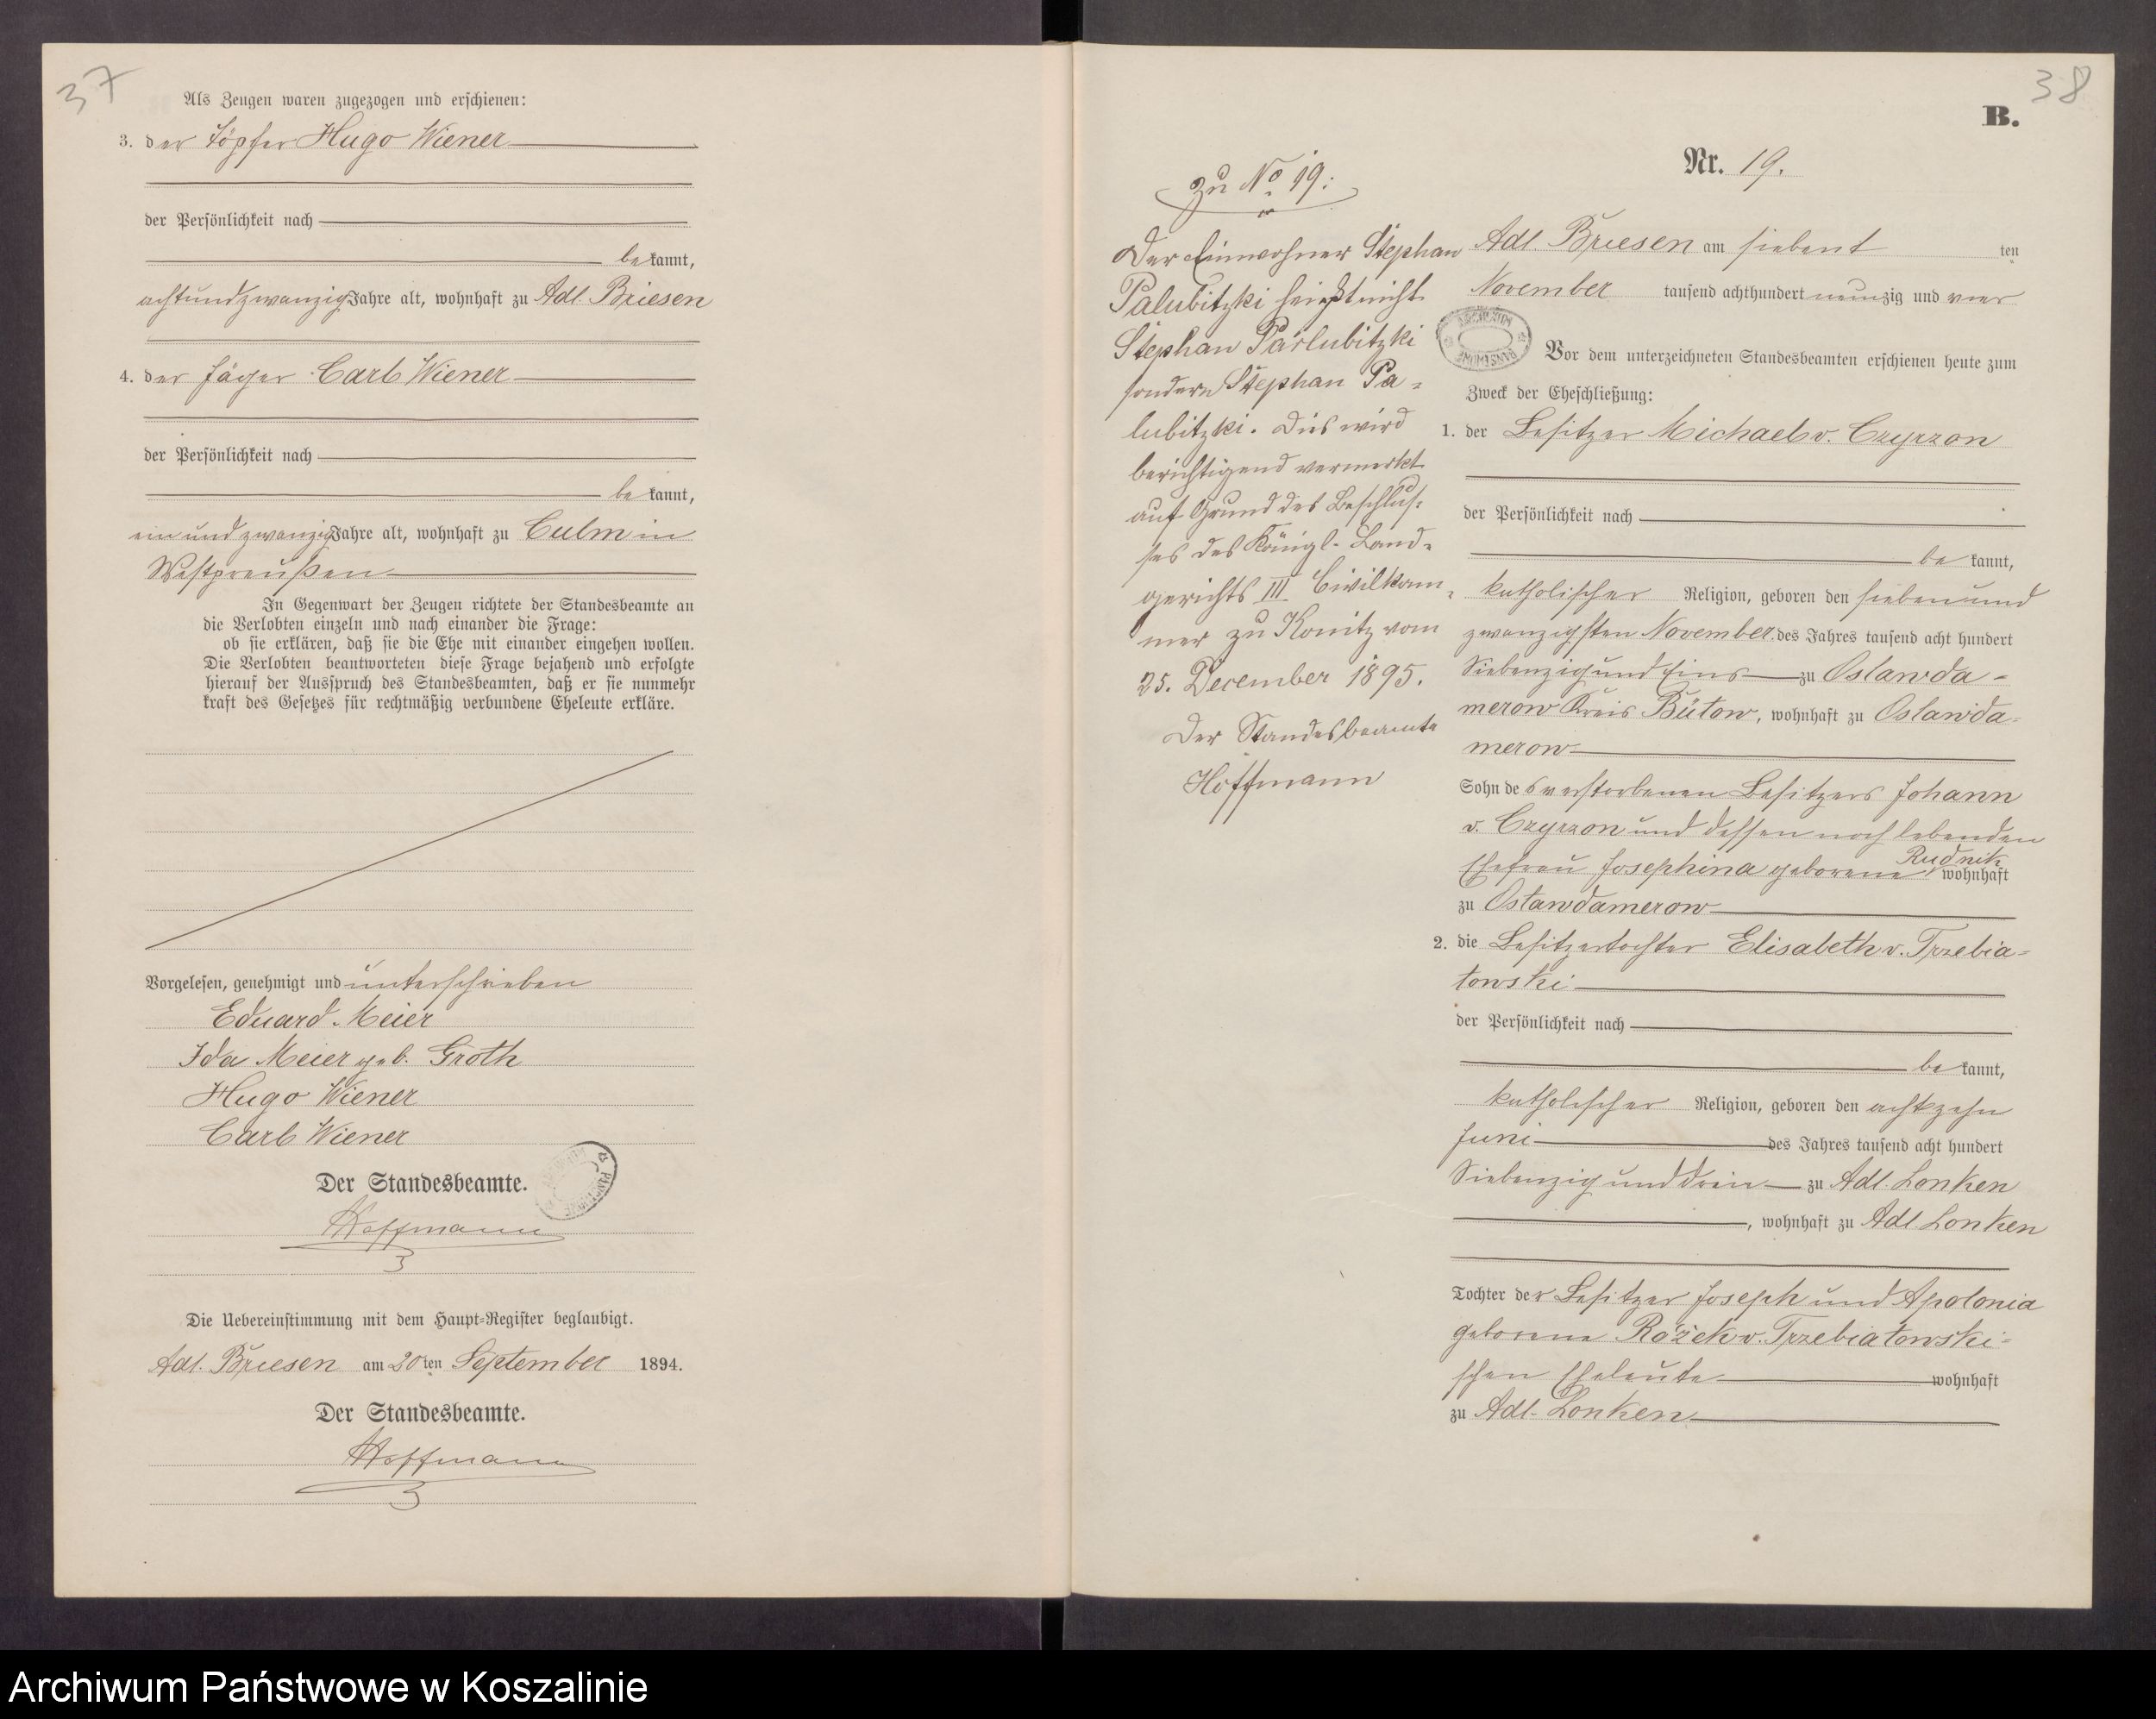 37
Als Zeugen waren zugezogen und erschienen:
3. der Töpfer Hugo Wiener
der Persönlichkeit nach
be kannt,
achtundzwanzig Jahre alt, wohnhaft zu Adl. Briesen
4. der Jäger Carl Wiener
der Persönlichkeit nach
be kannt,
ein und zwanzig Jahre alt, wohnhaft zu Culm in
Westpreußen
In Gegenwart der Zeugen richtete der Standesbeamte an
die Verlobten einzeln und nach einander die Frage:
ob sie erklären, daß sie die Ehe mit einander eingehen wollen.
Die Verlobten beantworteten diese Frage bejahend und erfolgte
hierauf der Ausspruch des Standesbeamten, daß er sie nunmehr
kraft des Gesetzes für rechtmäßig verbundene Eheleute erkläre.
Vorgelesen, genehmigt und unterschrieben
Eduard Meier
Ida Meier geb. Groth
Hugo Wiener
Carl Wiener
Der Standesbeamte.
Hoffmann
Die Uebereinstimmung mit dem Haupt-Register beglaubigt.
Adl. Briesen am 20ten September 1894.
Der Standesbeamte.
Hoffmann
38
B.
Nr. 19.
zu No 19:
Der Einwohner Stephan
Palubitzki heißt nicht
Stephan Parlubitzki
sondern Stephan Pa-
lubitzki. Dies wird
berichtigend vermerkt
auf Grund des Beschlus-
ses des Königl. Land-
gerichts III Civilkam-
mer zu Konitz vom
25. December 1895.
Der Standesbeamte
Hoffmann
Adl. Briesen am siebent ten
November tausend achthundert neunzig und vier
Vor dem unterzeichneten Standesbeamten erschienen heute zum
Zweck der Eheschließung:
1. der Besitzer Michael v. Czyrzon
der Persönlichkeit nach
be kannt,
katholischer Religion, geboren den sieben und
zwanzigsten November des Jahres tausend acht hundert
Siebenzig und Eins zu Oslawda-
merow Kreis Bütow, wohnhaft zu Oslawda-
merow
Sohn des verstorbenen Besitzers Johann
v. Czyrzon und dessen noch lebenden
Ehefrau Josephina geborene Rudnik wohnhaft
zu Oslawdamerow
2. die Besitzertochter Elisabeth v. Trzebia-
towski
der Persönlichkeit nach
be kannt,
katholischer Religion, geboren den achtzehn
Juni des Jahres tausend acht hundert
Siebenzig und drei zu Adl. Lonken
, wohnhaft zu Adl Lonken
Tochter der Besitzer Joseph und Apolonia
geborene Rózek v. Trzebiatowski-
schen Eheleute wohnhaft
zu Adl. Lonken
Archiwum Państwowe w Koszalinie